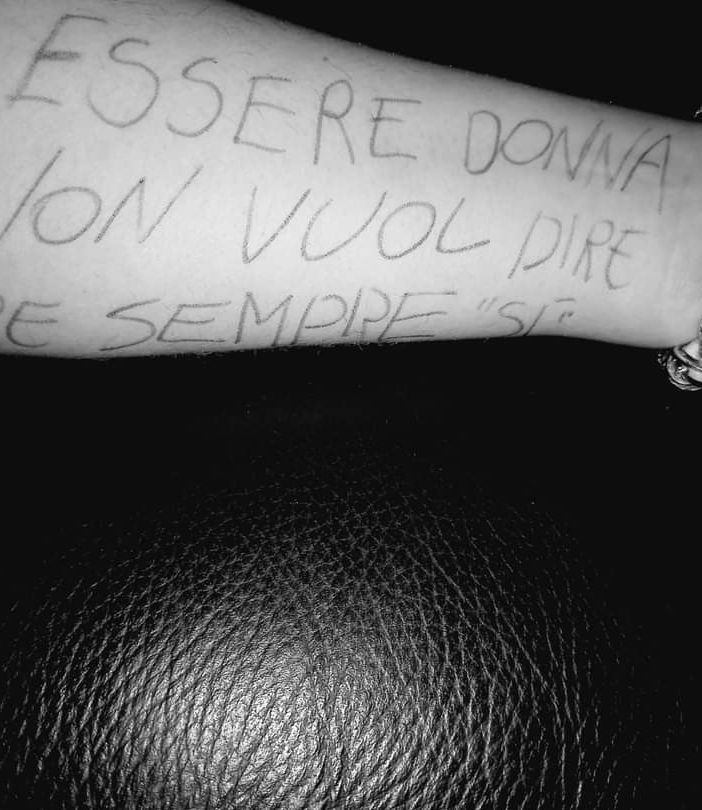 ESSERE DONNA
NON VUOL DIRE
RE SEMPRE "SÌ"